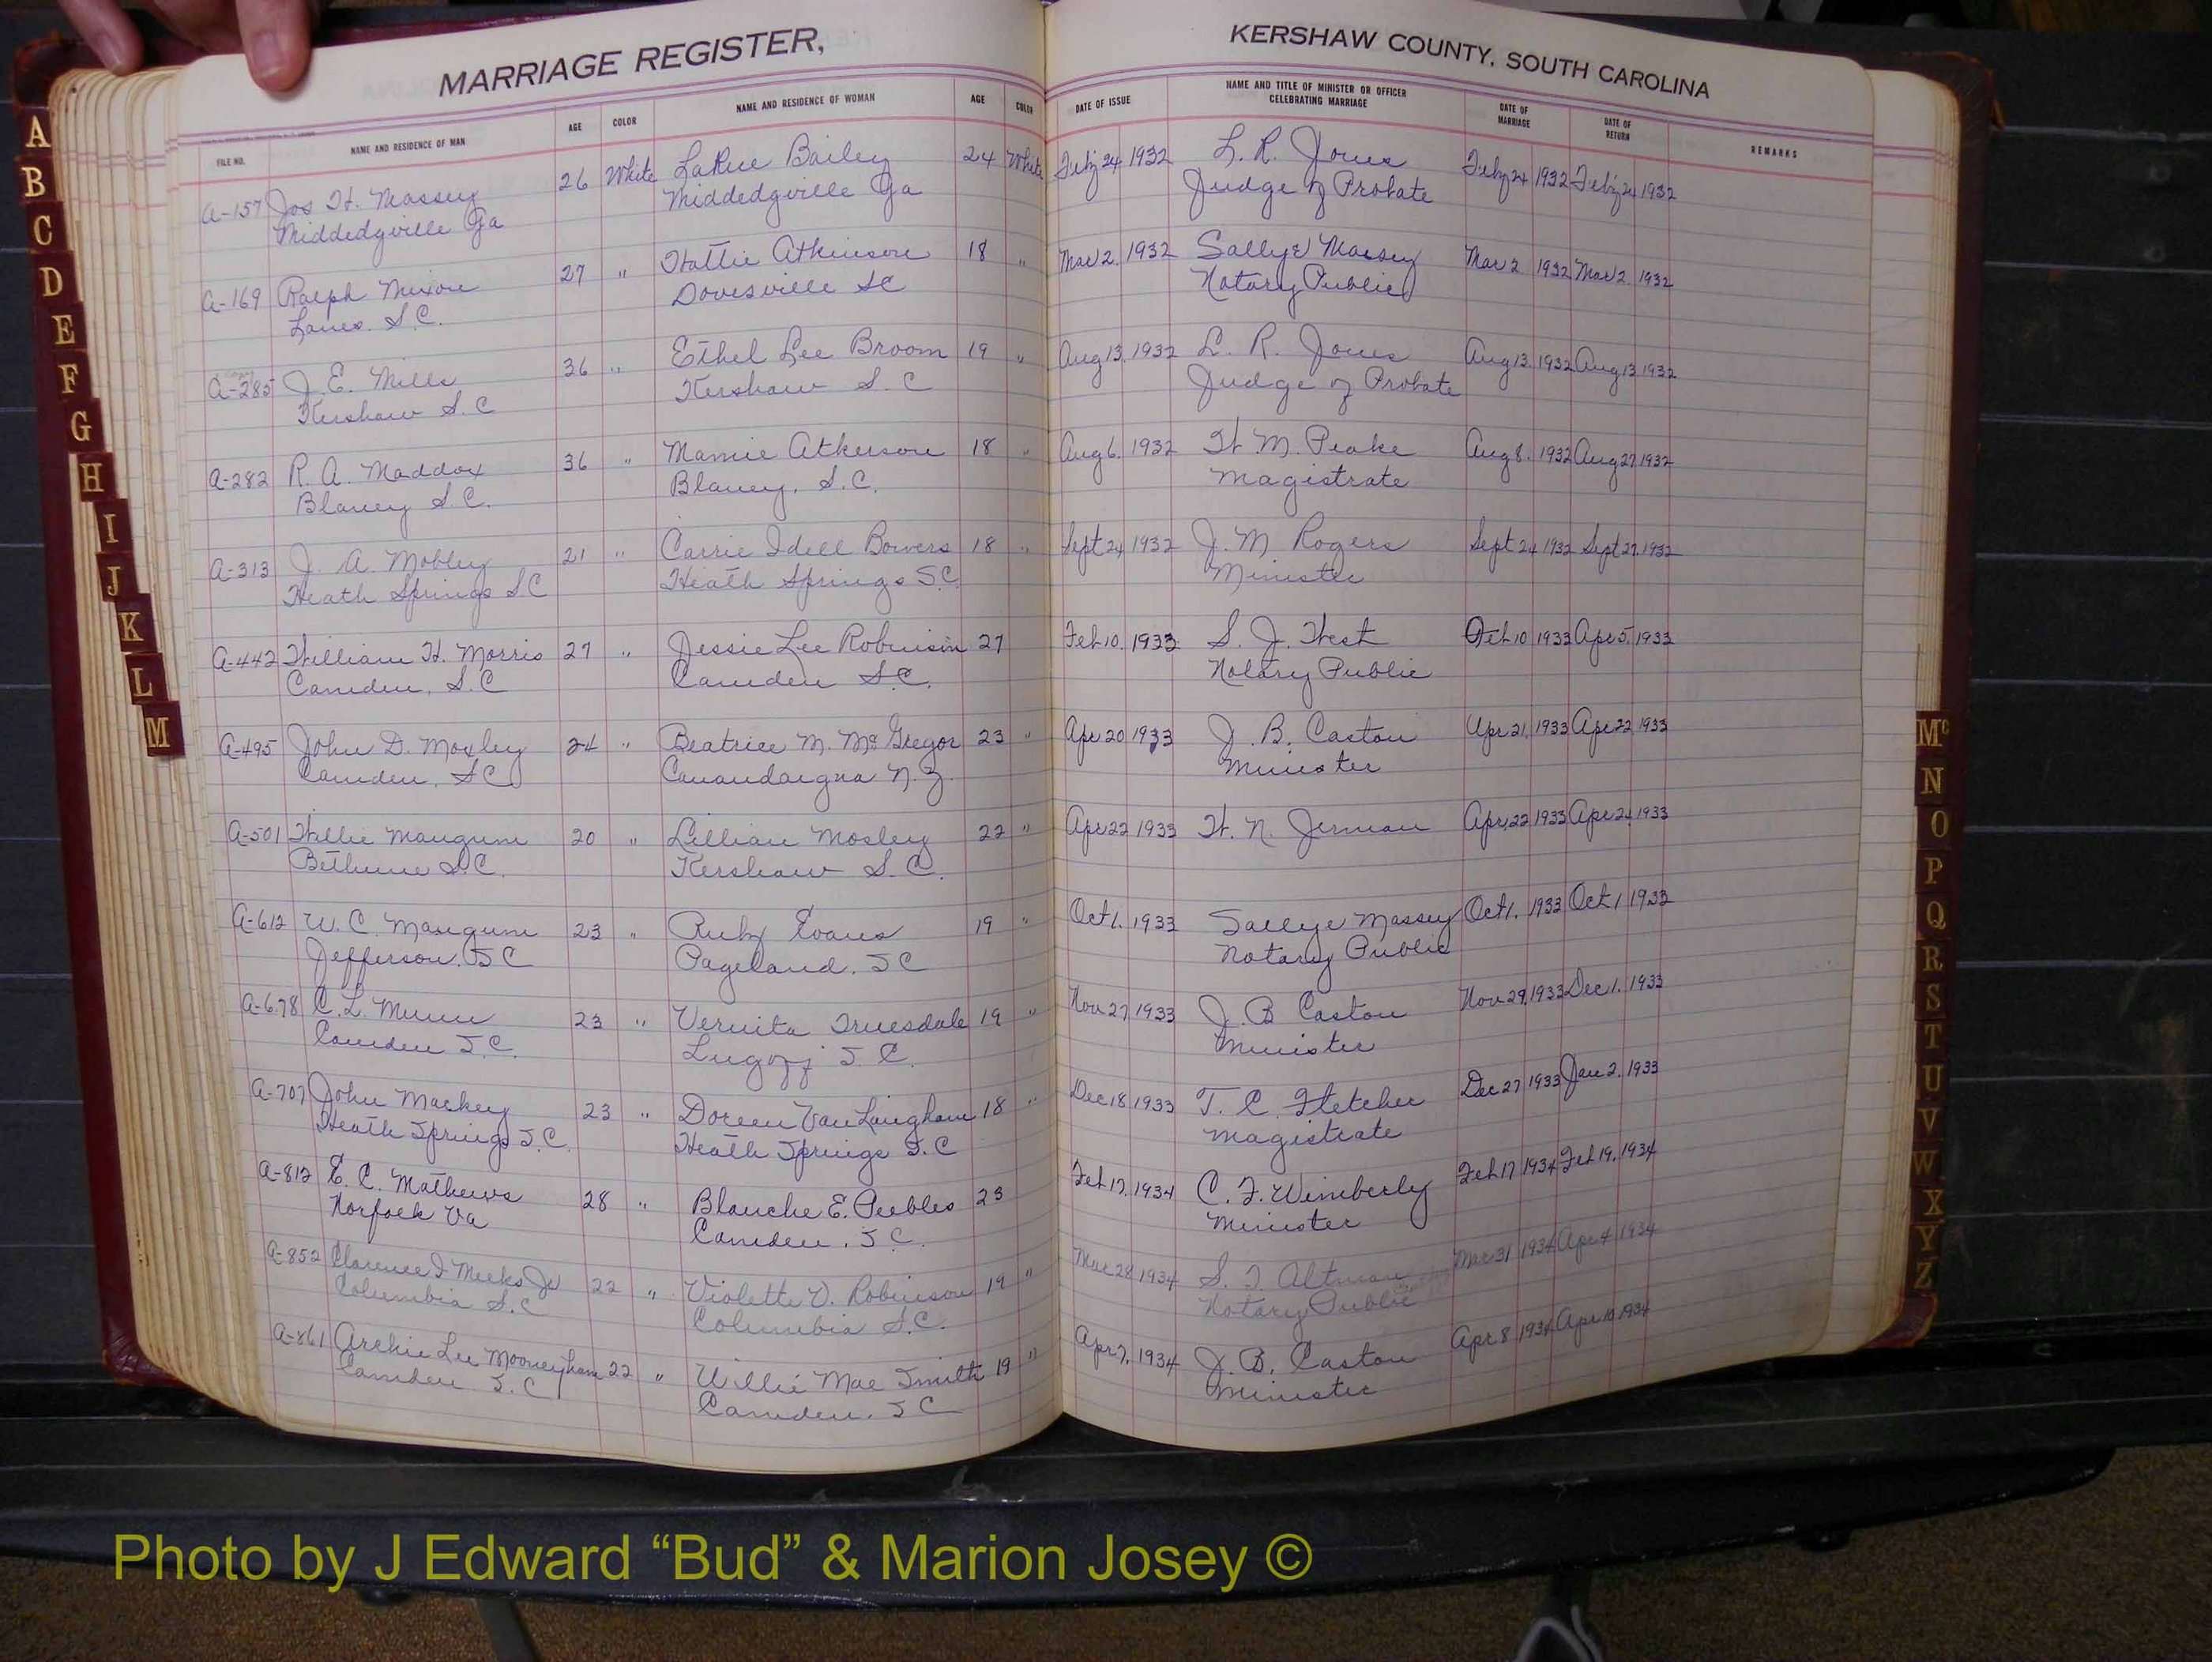 MARRIAGE REGISTER,
KERSHAW COUNTY, SOUTH CAROLINA
FILE NO. NAME AND RESIDENCE OF MAN AGE COLOR NAME AND RESIDENCE OF WOMAN AGE COLOR DATE OF ISSUE NAME AND TITLE OF MINISTER OR OFFICER CELEBRATING MARRIAGE DATE OF MARRIAGE DATE OF RETURN REMARKS
A-157 Jos H. Massey 26 White LaRue Bailey 24 White Feby 24 1932 L. R. Jones Feby 24 1932 Feby 24 1932
Middedgville Ga Middedgville Ga Judge of Probate
A-169 Ralph Mixon 27 " Hattie Atkinson 18 " Mar 2. 1932 Sallye Massey Mar 2 1932 Mar 2. 1932
Lanes. S.C. Dovesville SC Notary Public
A-285 J. E. Mills 36 " Ethel Lee Broom 19 " Aug 13. 1932 L. R. Jones Aug 13. 1932 Aug 13 1932
Kershaw S.C Kershaw S.C Judge of Probate
A-282 R. A. Maddox 36 " Mamie Atkerson 18 " Aug 6. 1932 H. M. Peake Aug 8. 1932 Aug 27 1932
Blaney S.C. Blaney, S.C. Magistrate
A-313 J. A. Mobley 21 " Carrie Idell Bowers 18 " Sept 24 1932 J. M Rogers Sept 24 1932 Sept 27. 1932
Heath Springs S.C Heath Springs S.C. Minister
A-442 William H. Morris 27 " Jessie Lee Robinson 27 Feb 10. 1933 S. J. West Feb 10 1933 Apr 5. 1933
Camden, S.C Camden S.C. Notary Public
A-495 John D. Moxley 24 " Beatrice M. McGregor 23 " Apr 20 1933 J. B. Caston Apr 21, 1933 Apr 22 1933
Camden, SC Canandaigua N.Y. Minister
A-501 Willie Mangum 20 " Lillian Mosley 22 " Apr 22 1933 H. N. Jerman Apr 22 1933 Apr 24 1933
Bethune S.C. Kershaw S.C.
A-612 W. C. Mangum 23 " Ruby Evans 19 " Oct 1. 1933 Sallye Massey Oct 1. 1933 Oct 1 1933
Jefferson. SC Pageland. SC Notary Public
A-678 C. L. Munn 23 " Vernita Truesdale 19 " Nov 27 1933 J. B Caston Nov 29, 1933 Dec 1. 1933
Camden S.C. Lugoff S.C. Minister
A-707 John Mackey 23 " Doreen VanLaingham 18 " Dec 18 1933 T. C. Fletcher Dec 27 1933 Jan 2. 1933
Heath Springs S.C. Heath Springs S.C Magistrate
A-812 E. C. Mathews 28 " Blanche E. Peebles 23 Feb 17. 1934 C. F. Wimberly Feb 17 1934 Feb 19. 1934
Norfock Va Camden. S.C. Minister
A-852 Clarence I Meeks Jr 22 " Violette V. Robinson 19 " Mar 28 1934 S. T. Altman Mar 31 1934 Apr 4 1934
Columbia S.C Columbia S.C. Notary Public
A-861 Archie Lee Mooneyham 22 " Willie Mae Smith 19 " Apr 7. 1934 J. B. Caston Apr 8 1934 Apr 10 1934
Camden S.C Camden, SC Minister
A
B
C
D
E
F
G
H
I
J
K
L
M
Mc
N
O
P
Q
R
S
T
U
V
W
X
Y
Z
Photo by J Edward “Bud” & Marion Josey ©